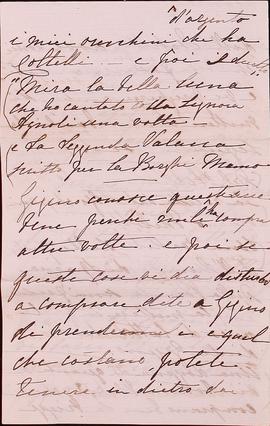 d'argento
i miei orecchini che ha
Coltelli — e poi 2 duetti
"Mira la bella luna
che ho cantato colla Signora
Agnoli una volta.
e La Leggenda Valacca
scritto per la Borghi Mamo
Gigino conosce questi
bene, perché me li ha
altre volte. e poi se
queste cose vi dia disturbo
a comprare, dite a Gigino
di prendermi e quel
che costano, potete
tenere in dietro dai